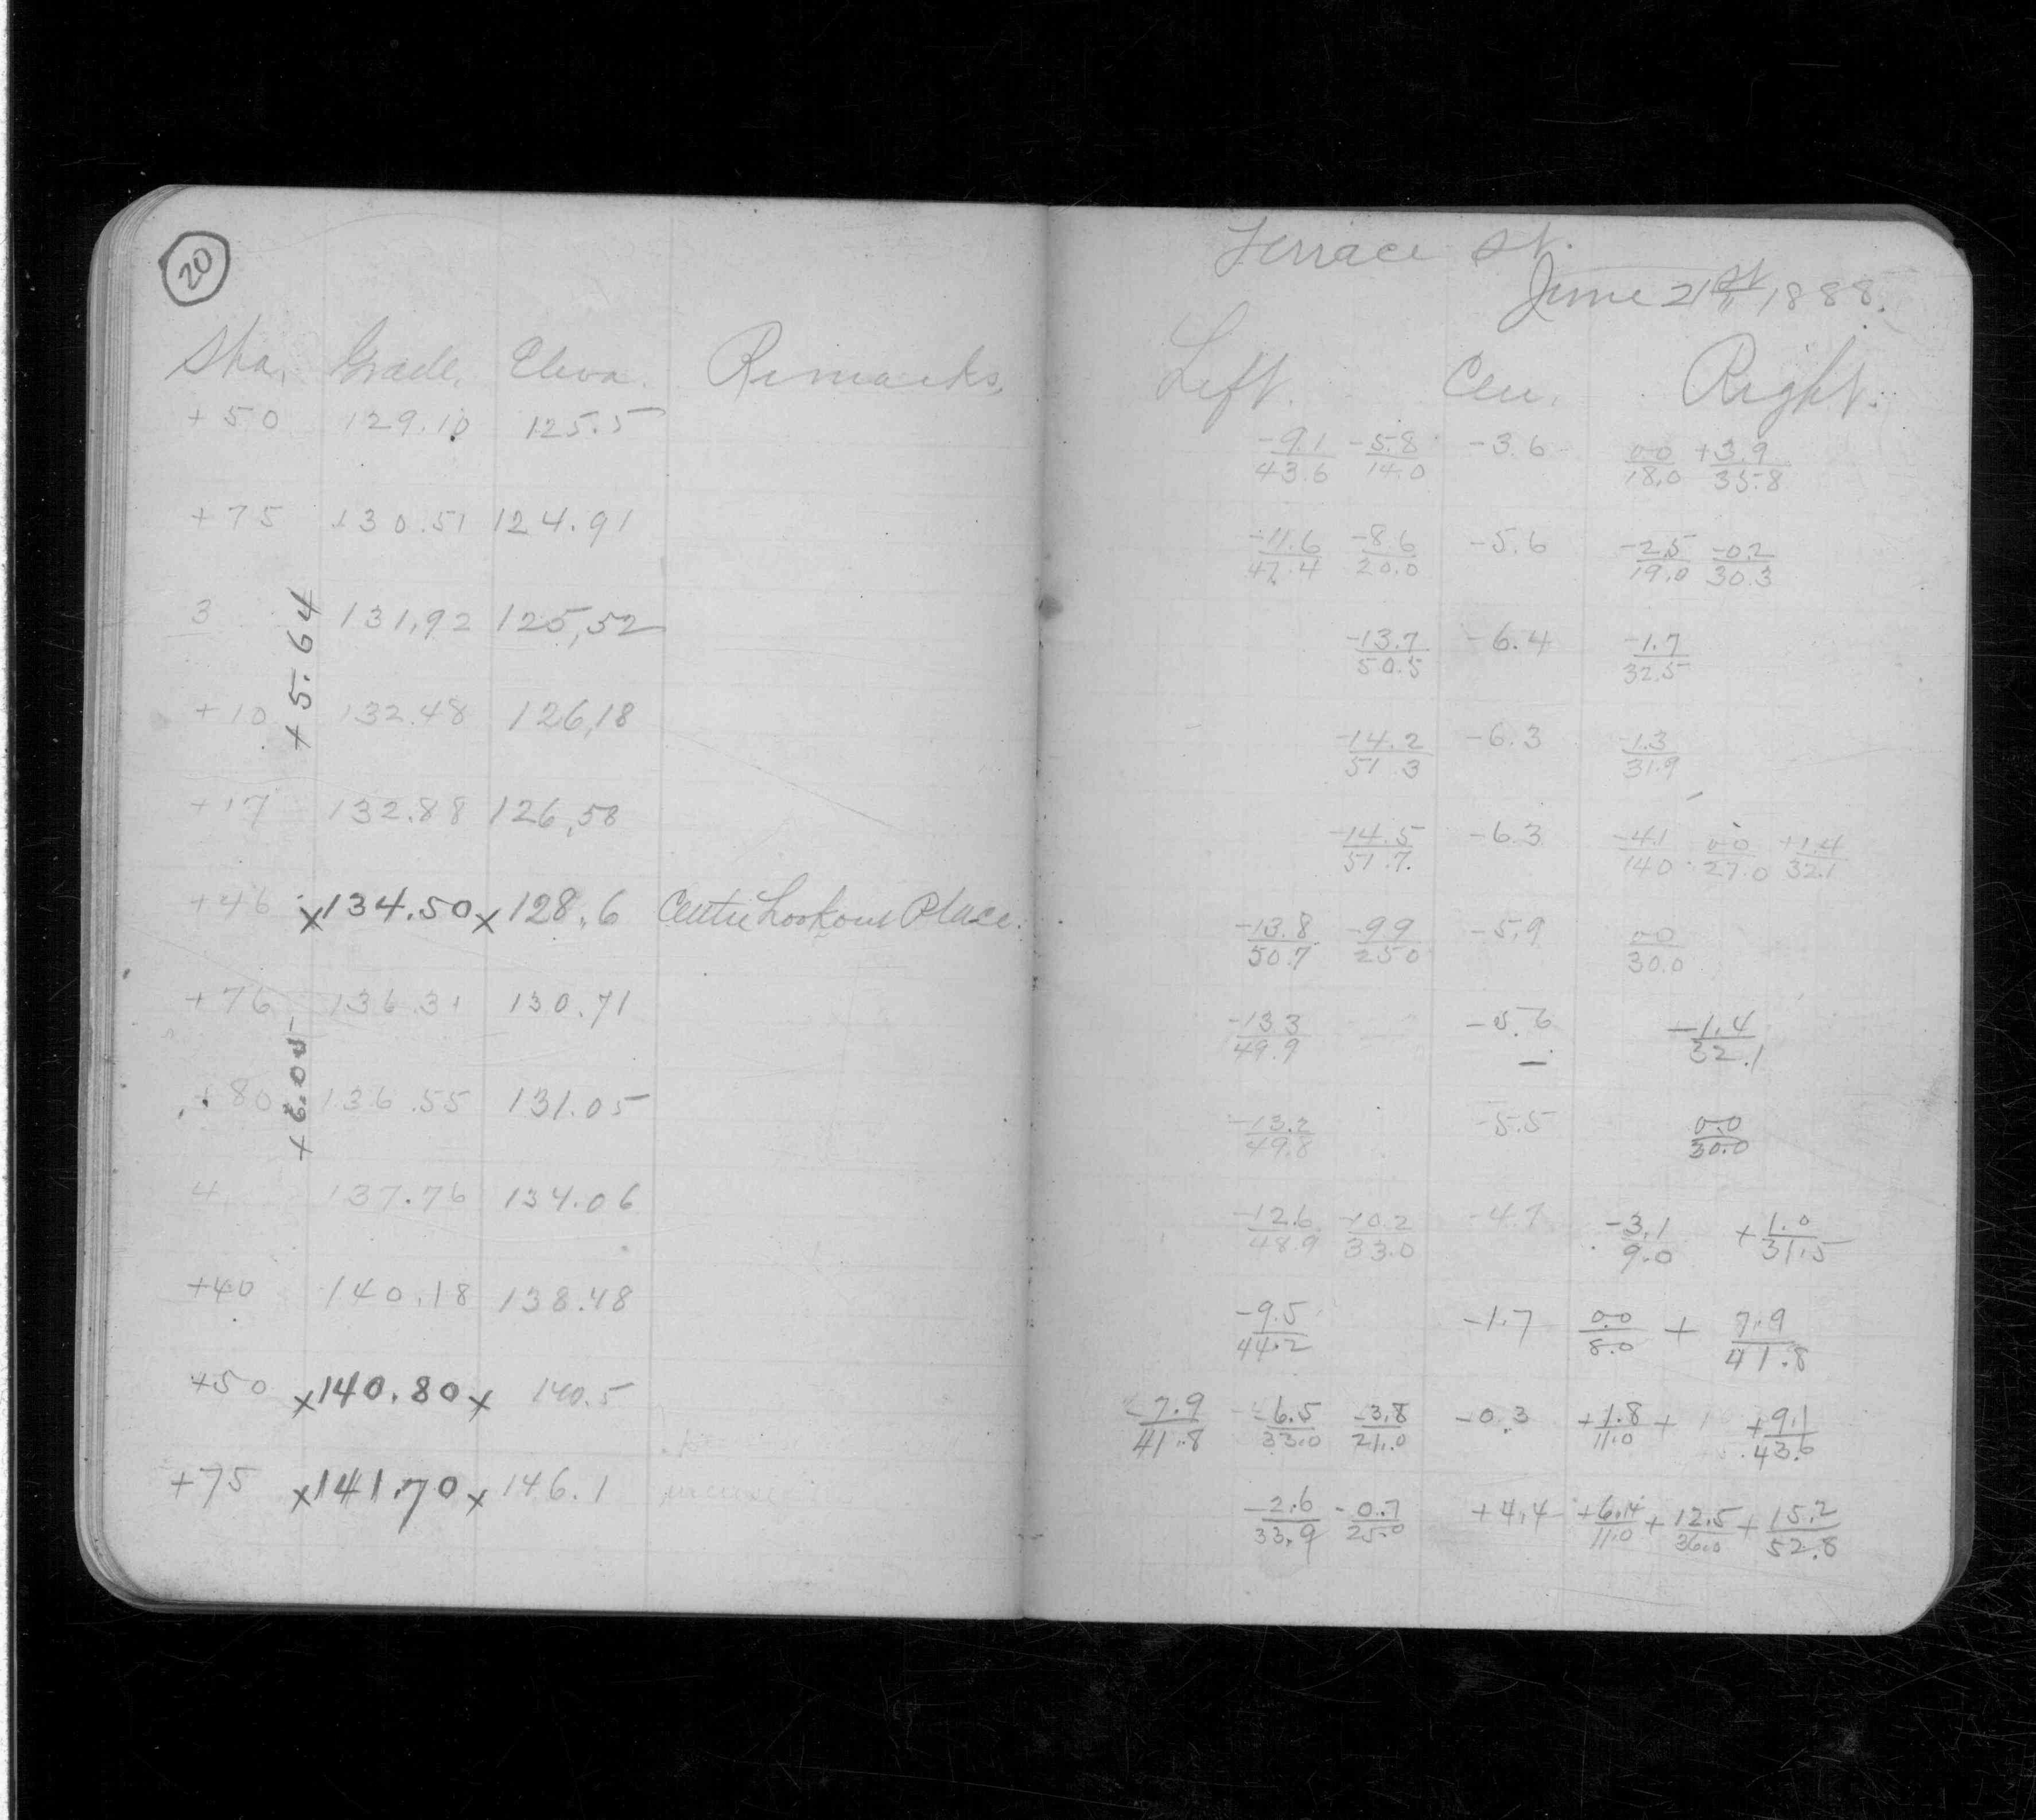 20
Terrace St.
June 21st, 1888.
Sta. Grade. Eleva. Remarks.
Left. Cen. Right.
+50 129.10 125.5 -9.1/43.6 -5.8/14.0 -3.6 00/18.0 +3.9/35.8
+75 130.51 124.91 -11.6/47.4 -8.6/20.0 -5.6 -2.5/19.0 -0.2/30.3
3 131.92 125.52 -13.7/50.5 -6.4 -1.7/32.5
+5.64
+10 132.48 126.18 -14.2/51.3 -6.3 -1.3/31.9
+17 132.88 126.58 -14.5/51.7 -6.3 -4.1/14.0 00/27.0 +1.4/32.1
+46 x134.50x 128.6 Centre Lookout Place. -13.8/50.7 -9.9/25.0 -5.9 00/30.0
+76 136.31 130.71 -13.3/49.9 -5.6 -1.4/32.1
+6.05
+80 136.55 131.05 -13.2/49.8 -5.5 0.0/30.0
4 137.76 134.06 -12.6/48.9 -10.2/33.0 -4.7 -3.1/9.0 +1.0/31.5
+40 140.18 138.48 -9.5/44.2 -1.7 0.0/8.0 + 7.9/41.8
+50 x140.80x 140.5 -7.9/41.8 -6.5/33.0 -3.8/21.0 -0.3 +1.8/11.0 + +9.1/43.6
+75 x141.70x 146.1 -2.6/33.9 -0.7/25.0 +4.4 +6.4/11.0 +12.5/36.0 +15.2/52.8